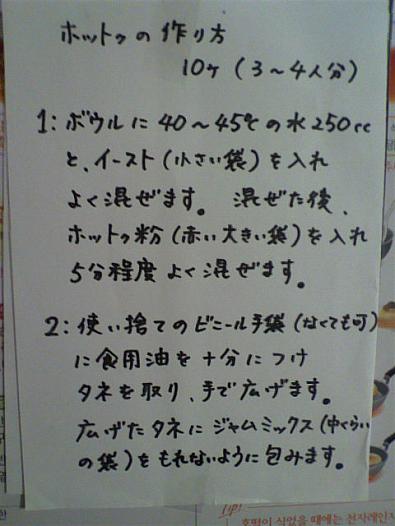 ホットゥの作り方
10ケ (3～4人分)
1: ボウルに 40～45℃の水250cc
と、イースト(小さい袋)を入れ
よく混ぜます。 混ぜた後、
ホットゥ粉(赤い大きい袋)を入れ
5分程度よく混ぜます。
2: 使い捨てのビニール手袋(なくても可)
に食用油を十分につけ
タネを取り、手で広げます。
広げたタネにジャムミックス(中くらい
の袋)をもれないように包みます。
Tip!
호떡이 식었을 때에는 전자레인지